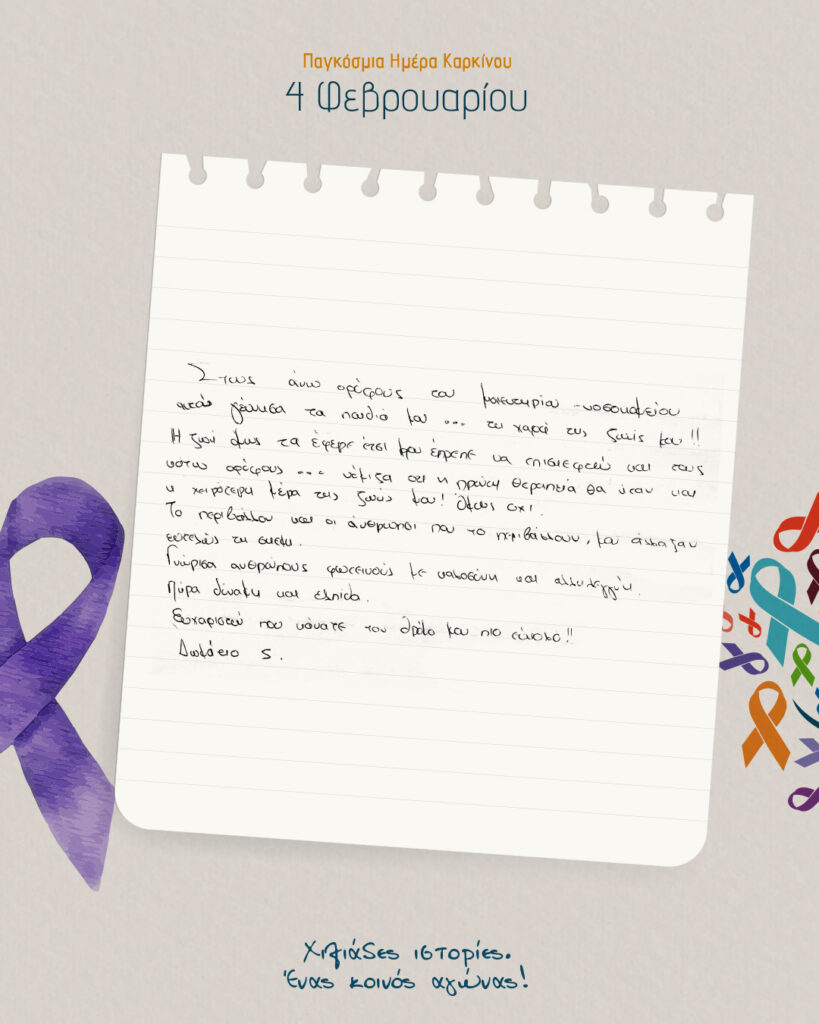 Παγκόσμια Ημέρα Καρκίνου
4 Φεβρουαρίου
Στους άνω ορόφους του μαιευτηρίου - νοσοκομείου
γέννησα τα παιδιά μου ... τη χαρά της ζωής μου!!
Η ζωή όμως τα έφερε έτσι που έπρεπε να επισκεφτώ και τους
κάτω ορόφους ... νόμιζα οτι η πρώτη θεραπεία θα ήταν και
η χειρότερη μέρα της ζωής μου! Όμως όχι.
Το περιβάλλον και οι άνθρωποι που το περιβάλλουν, μου άλλαξαν
εντελώς τη
Γνώρισα ανθρώπους φωτεινούς με καλοσύνη και αλληλεγγύη.
Πήρα δύναμη και ελπίδα.
Ευχαριστώ που κάνατε τον δρόμο μου πιο εύκολο!!
Δωμάτιο 5.
Χιλιάδες ιστορίες.
Ένας κοινός αγώνας!